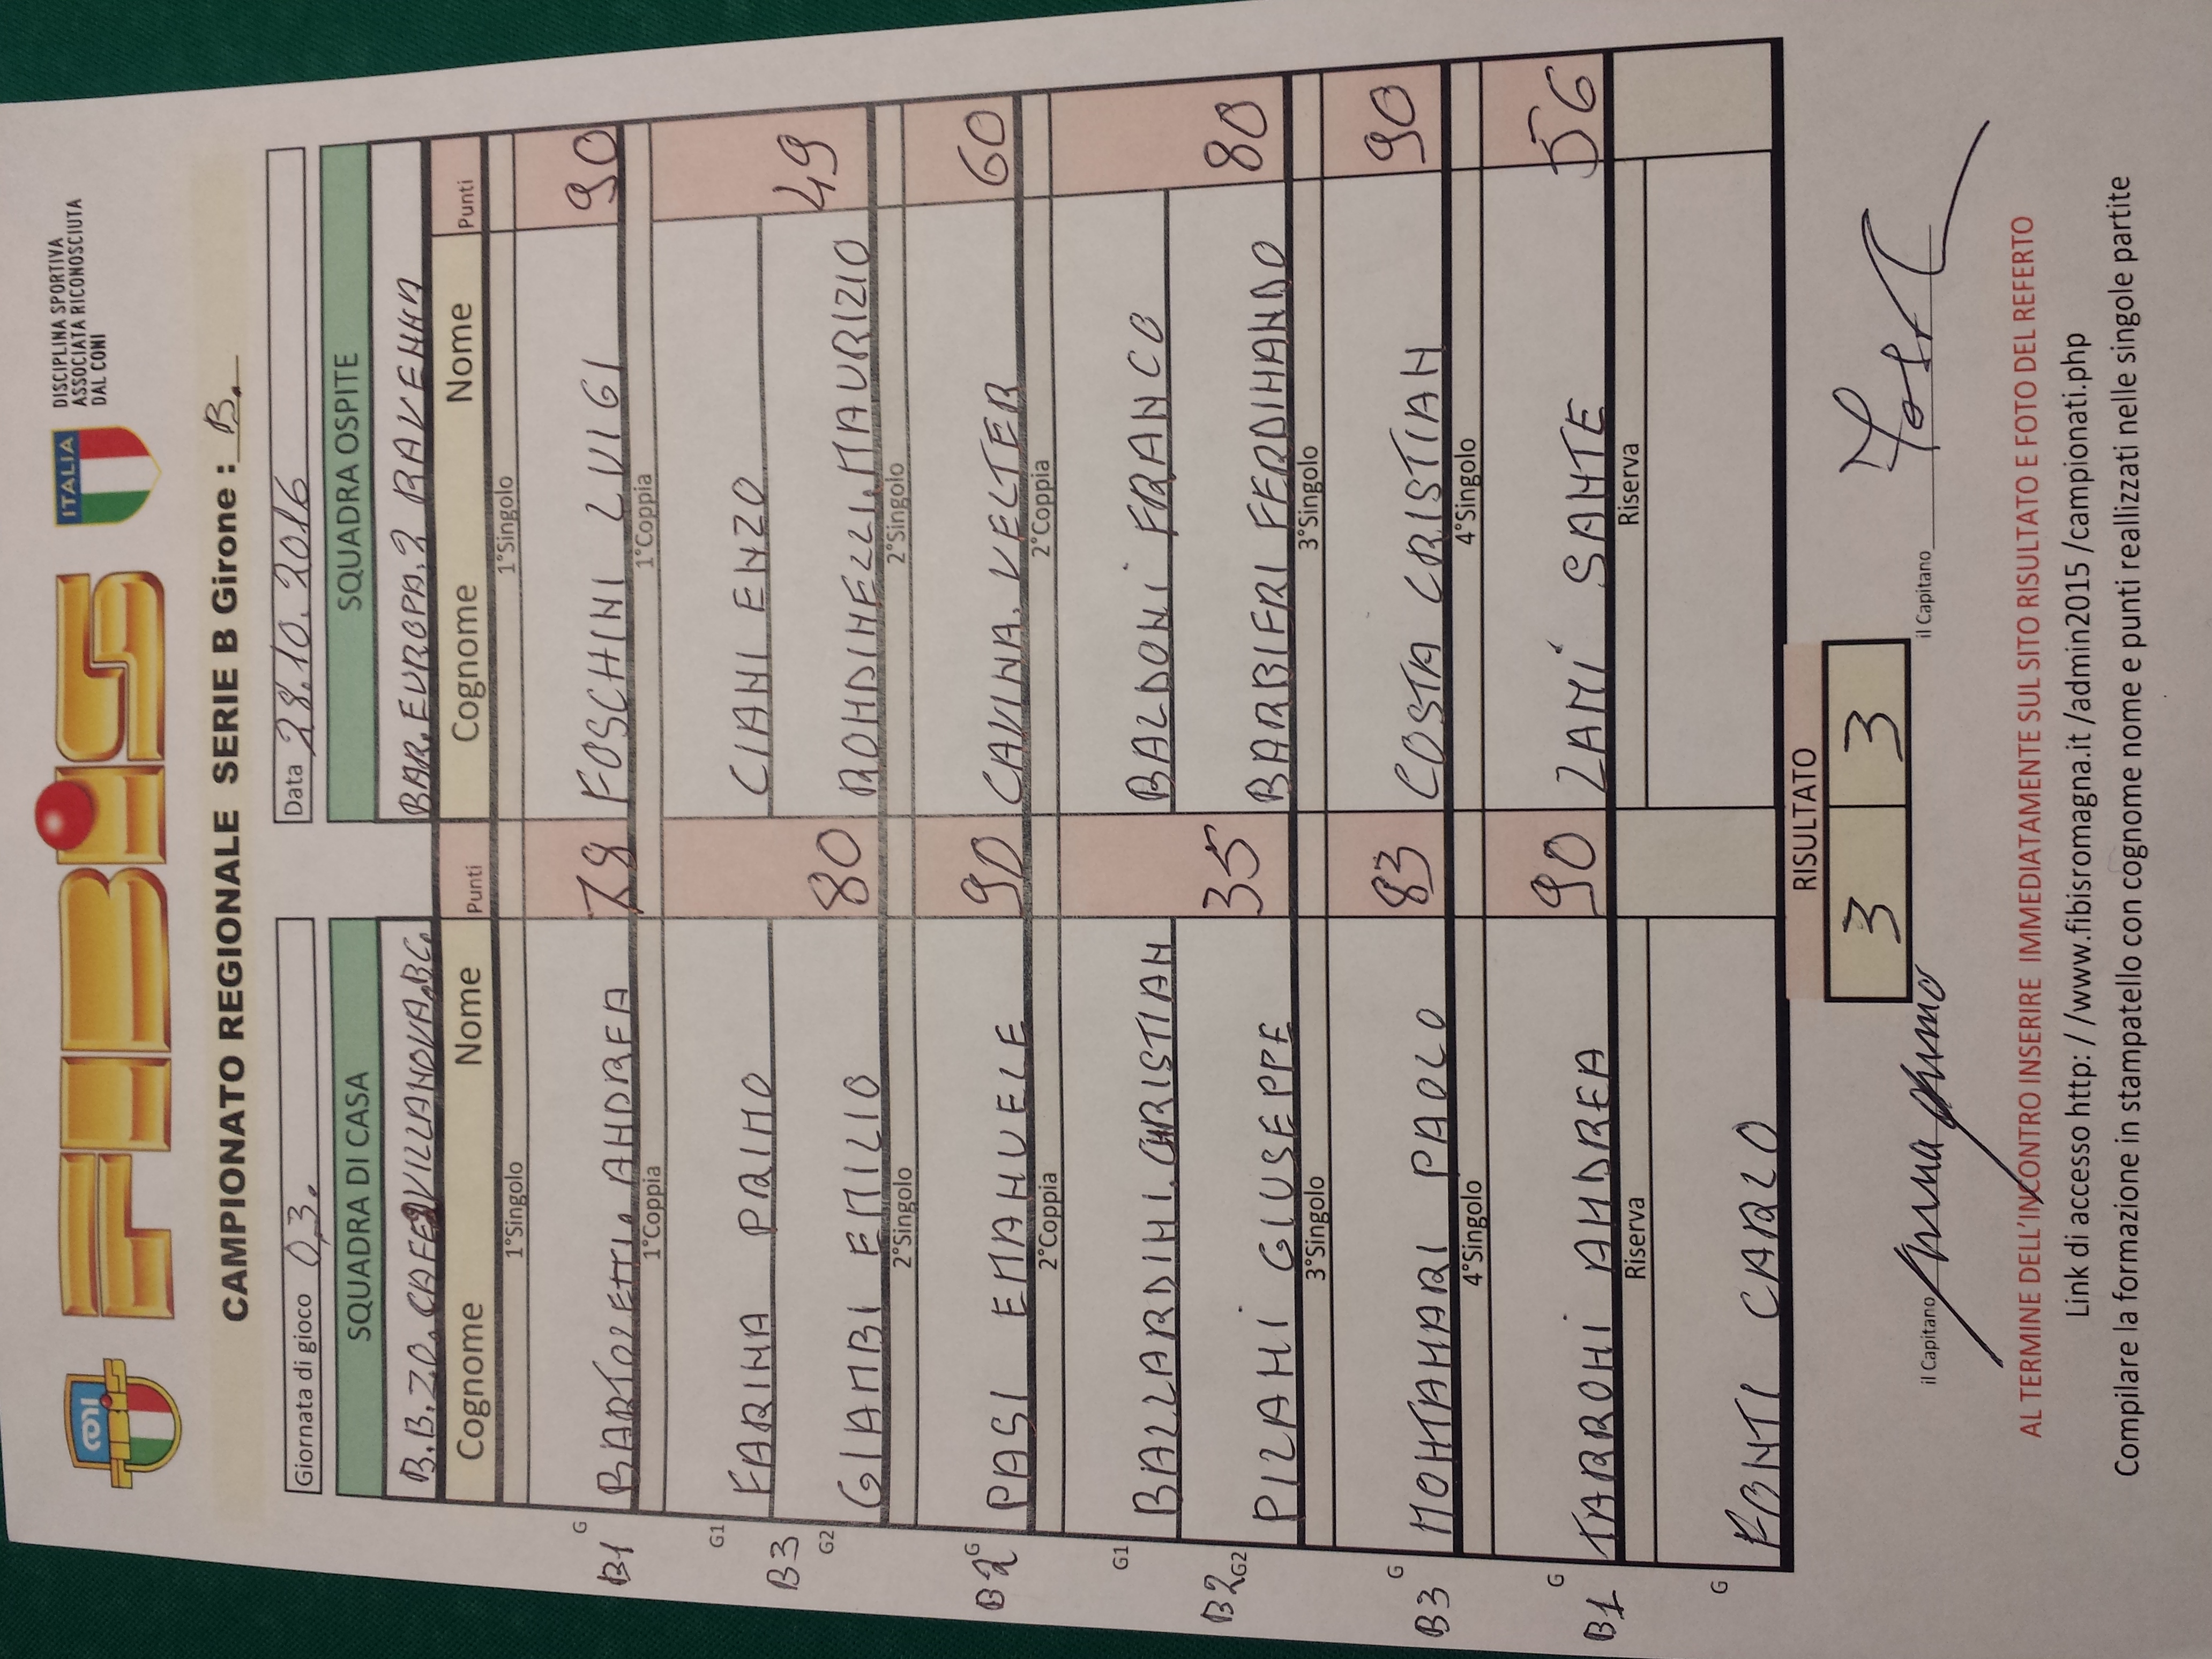 FIBiS
ITALIA
DISCIPLINA SPORTIVA
ASSOCIATA RICONOSCIUTA
DAL CONI
CAMPIONATO REGIONALE SERIE B Girone : B.
Giornata di gioco 03. Data 28.10.2016
SQUADRA DI CASA SQUADRA OSPITE
B.B.ZO.CAFE VILLANOVA.BC. BAR.EUROPA.2 RAVENNA
Cognome Nome Punti Cognome Nome Punti
1°Singolo 1°Singolo
B1 G BARTOLETTI.ANDREA 78 FOSCHINI LUIGI 90
1°Coppia 1°Coppia
G1 FARINA PRIMO CIANI ENZO
B3 G2 GIAMBI EMILIO 80 RONDINELLI.MAURIZIO 49
2°Singolo 2°Singolo
B2 G PASI EMANUELE 90 CAVINA.VELTER 60
2°Coppia 2°Coppia
G1 BALLARDINI.CHRISTIAN BALDONI FRANCO
B2 G2 PILANI GIUSEPPE 35 BARBIERI FERDINANDO 80
3°Singolo 3°Singolo
B3 G MONTANARI PAOLO 83 COSTA CRISTIAN 90
4°Singolo 4°Singolo
B1 G TARRONI ANDREA 90 ZAMI SANTE 56
Riserva Riserva
G PONTI CARLO
RISULTATO
3 3
il Capitano il Capitano
AL TERMINE DELL'INCONTRO INSERIRE IMMEDIATAMENTE SUL SITO RISULTATO E FOTO DEL REFERTO
Link di accesso http: / /www.fibisromagna.it /admin2015 /campionati.php
Compilare la formazione in stampatello con cognome nome e punti reallizzati nelle singole partite